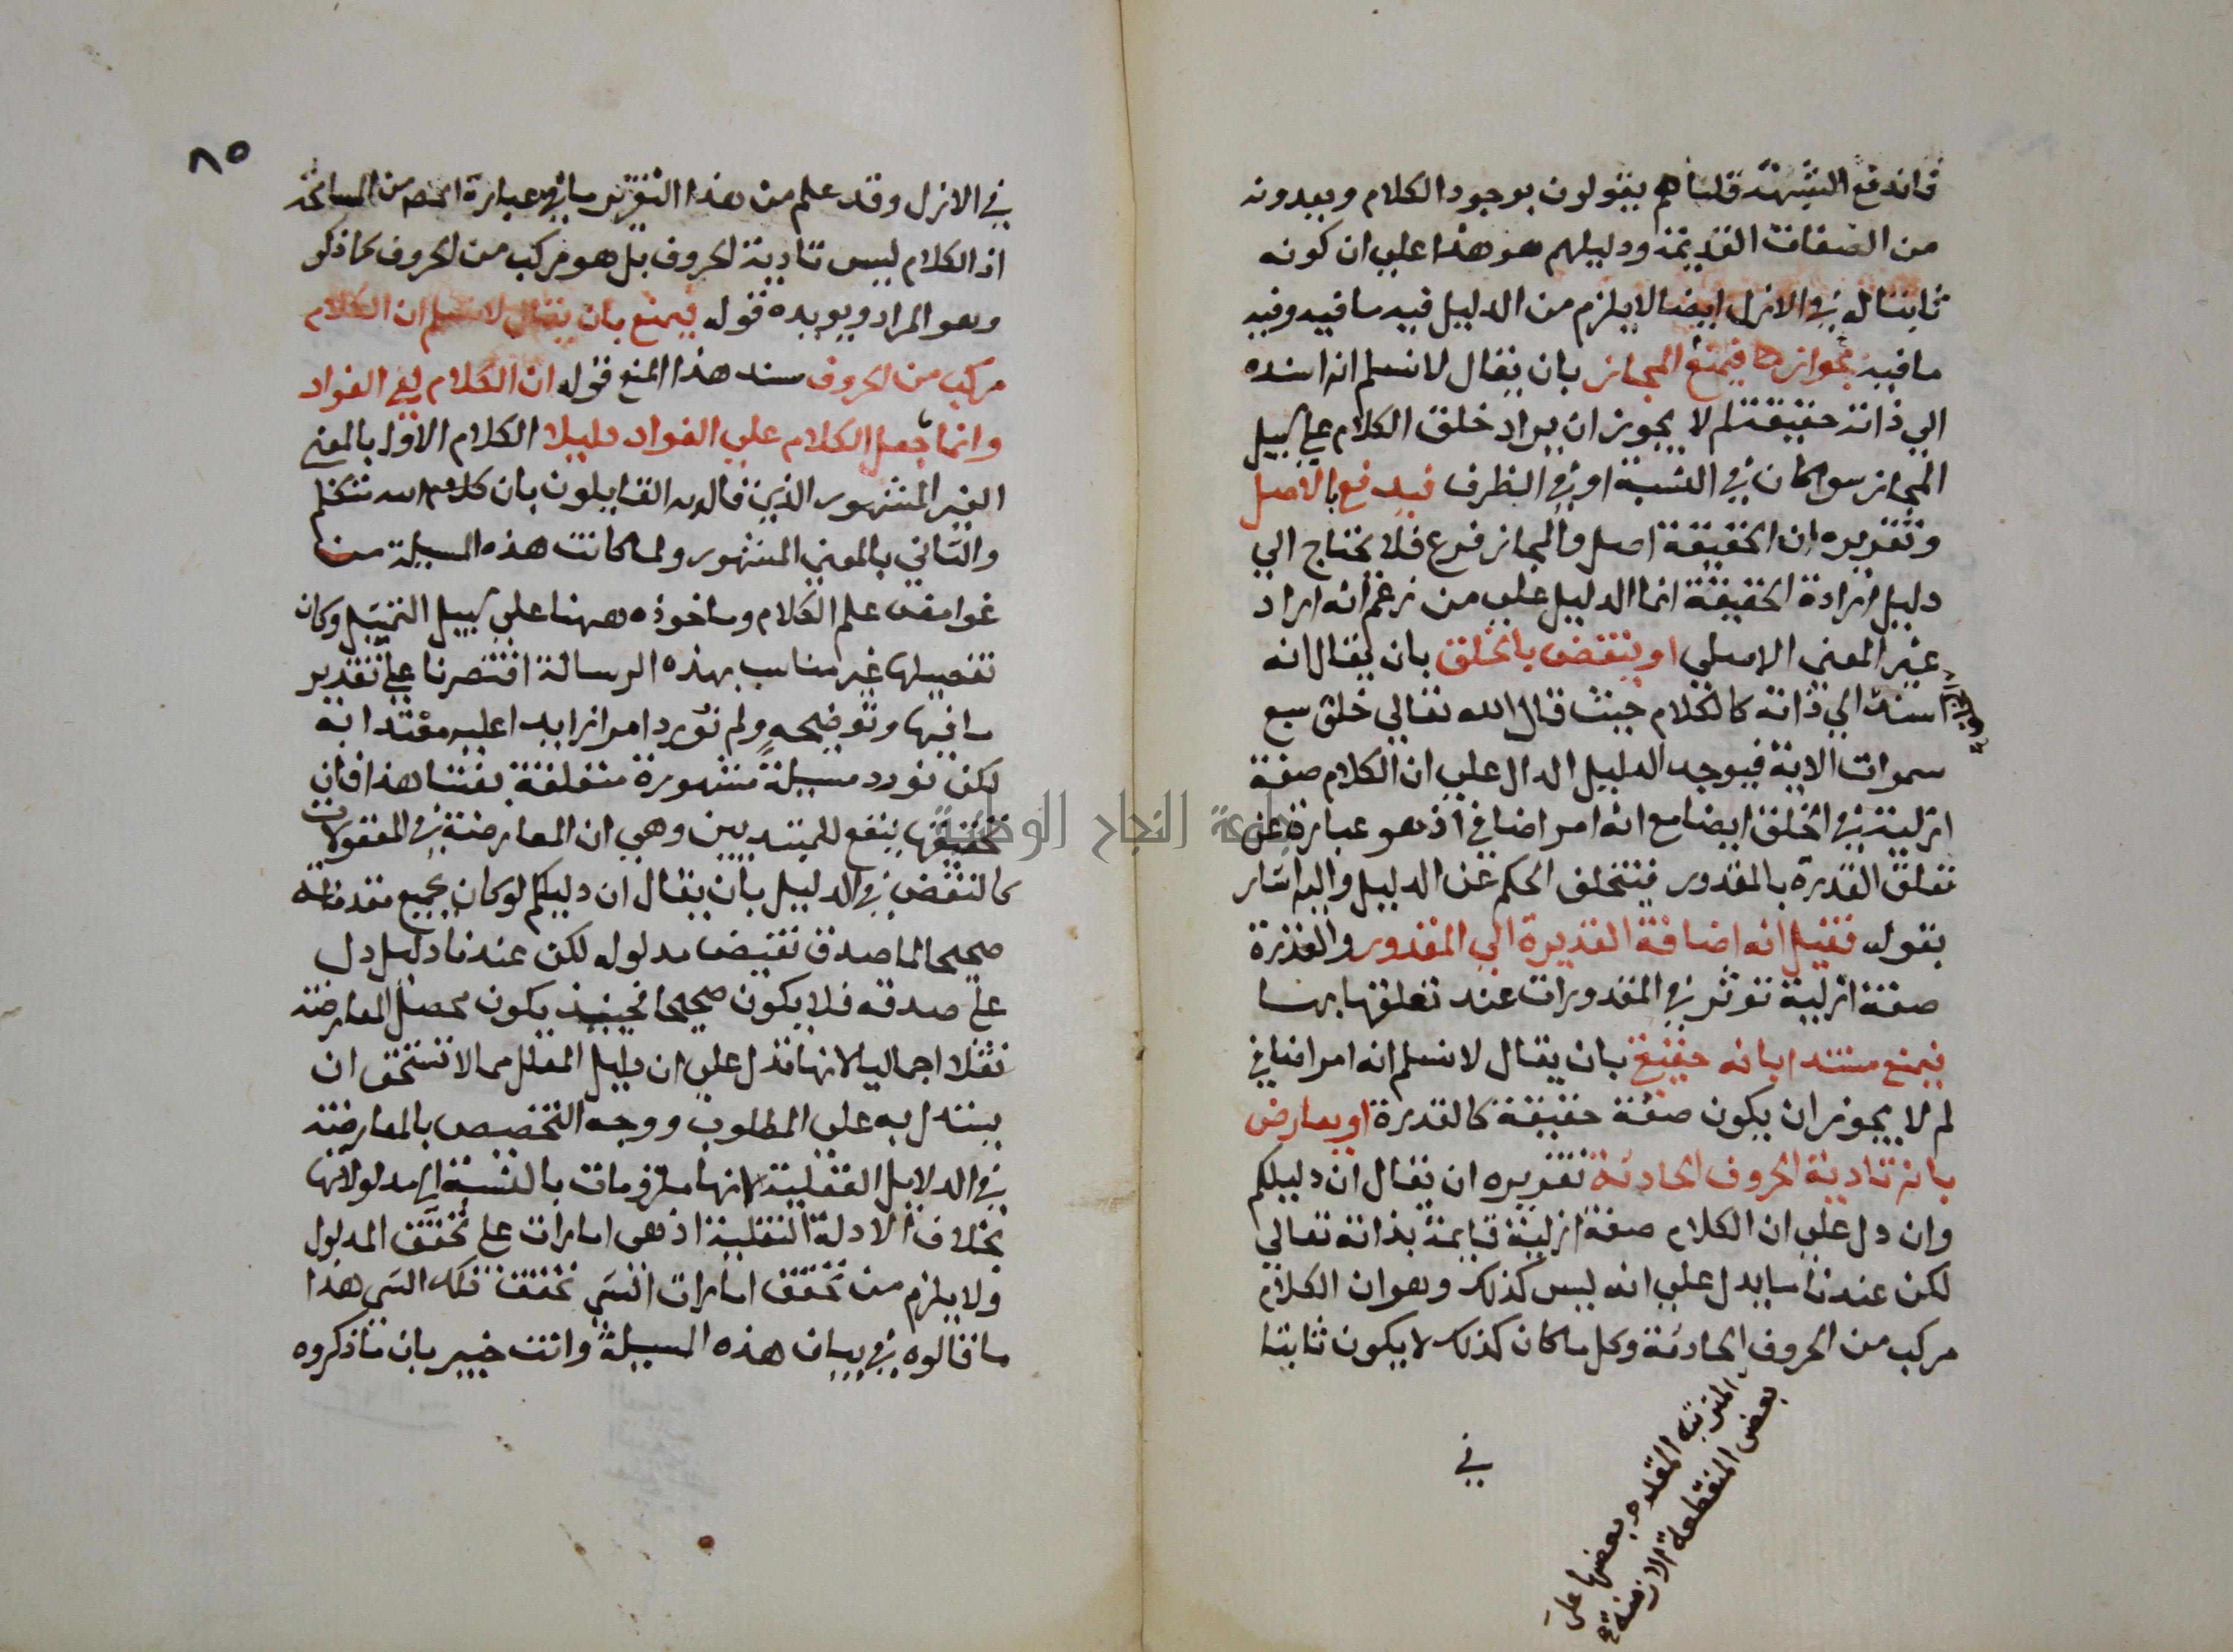 فاندفع الشبهة قلنا هم يقولون بوجود الكلام ويعدونه
من الصفات القديمة ودليلهم هو هذا على ان كونه
ثابتا له في الازل ايضا لا يلزم من الدليل فيه ما فيه وفيه
ما فيه بجوازها فيمنع المجاز بان يقال لا نسلم انه اسنده
الي ذاته حقيقة لم لا يجوز ان يراد خلق الكلام على سبيل
المجاز سوا كان في النسبة او في الطرف فيدفع بالاصل
وتقريره ان الحقيقة اصل والمجاز فرع فلا يحتاج الي
دليل ارادة الحقيقة انما الدليل على من زعم انه اراد
غير المعنى الاصلي او ينقض بالخلق بان يقال انه
اسند الي ذاته كالكلام حيث قال الله تعالي خلق سبع
سموات الاية فيوجد الدليل الدال على ان الكلام صفة
ازلية في الخلق ايضا مع انه امر اضافي اذ هو عبارة عن
تعلق القدرة بالمقدور فيتخلف الحكم عن الدليل واليه اشار
بقوله فقيل انه اضافة القديرة الي المقدور والقدرة
صفة ازلية توثر في المقدورات عند تعلقها بها
فيمنع مستندا بانه حقيقة بان يقال لا نسلم انه امر اضافي
لم لا يجوز ان يكون صفة حقيقة كالقدرة او يعارض
بانه تادية الحروف الحادثة تقريره ان يقال ان دليلكم
وان دل على ان الكلام صفة ازلية قايمة بذاته تعالي
لكن عندنا ما يدل على انه ليس كذلك وهو ان الكلام
مركب من الحروف الحادثة وكل ما كان كذلك لا يكون ثابتا
المترتبه المقدم بعضها على
بعض المنقطعة الازمنة
في
٨٥
في الازل وقد علم من هذا التقرير ما في عبارة المص من المسامحة
اذ الكلام ليس تادية الحروف بل هو مركب من الحروف كما ذكر
وهو المراد ويويده قوله فيمنع بان يقال لا نسلم ان الكلام
مركب من الحروف سند هذا المنع قوله ان الكلام لفي الفواد
وانما جعل الكلام على الفواد دليلا الكلام الاول بالمعنى
الغير المشهور الذي قال به القايلون بان كلام الله متكلم
والثاني بالمعنى المشهور ولما كانت هذه المسيلة من
غوامض علم الكلام وماخوذه ههنا على سبيل التمثيل وكان
تفصيلها غير مناسب بهذه الرسالة اقتصرنا على تقدير
ما فيها وتوضيحه ولم نورد امرا زايدا عليه مقتدا به
لكن نورد مسيلة مشهورة متعلقة بفننا هذا فان
تحقيقها ينفع للمبتديين وهي ان المعارضة في المعقولات
كالنقض في الدليل بان يقال ان دليلكم لو كان بجميع مقدماته
صحيحا لما صدق نقيض مدلوله لكن عندنا دليل دل
على صدقه فلا يكون صحيحا فحينيذ يكون محصل المعارضة
نقلا اجماليا لانها تدل على ان دليل المعلل مما لا تستحق ان
يستدل به على المطلوب ووجه التخصيص بالمعارضة
في الدلايل العقلية لانها ملزومات بالنسبة الى مدلولاتها
بخلاف الادلة النقلية اذ هي امارات على تحقق المدلول
ولا يلزم من تحقق امارات الشي تحقق ذلك الشي هذا
ما قالوه في بيان هذه المسيلة وانت خبير بان ما ذكروه
جامعة النجاح الوطنية